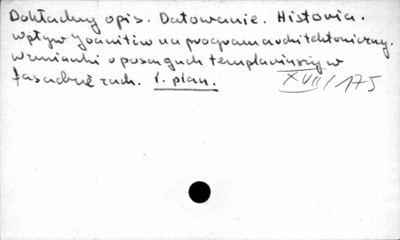 Dokładny opis. Datowanie. Historia.
Wpływ Joanitów na program architektoniczny.
Wzmianki o posągach templariuszy w
fasadzie zach. 1. plan. XVII/175